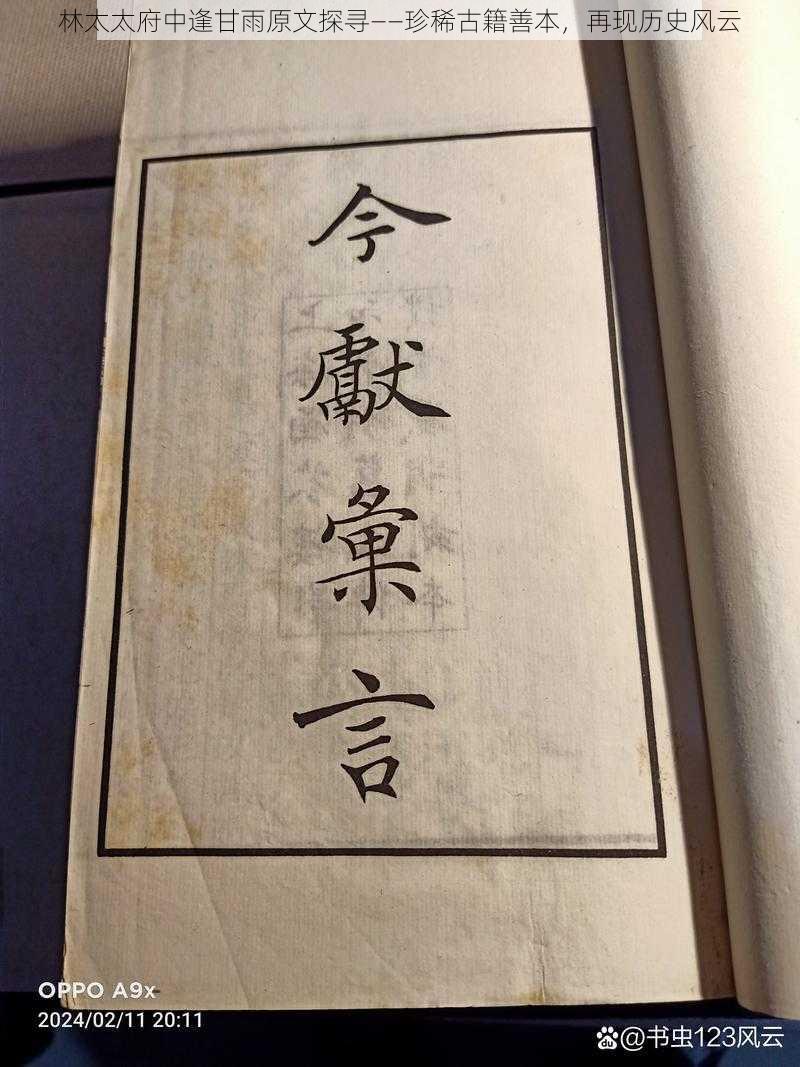 林太太府中逢甘雨原文探寻——珍稀古籍善本，再现历史风云
今
獻
彙
言
OPPO A9x
2024/02/11 20:11
@书虫123风云